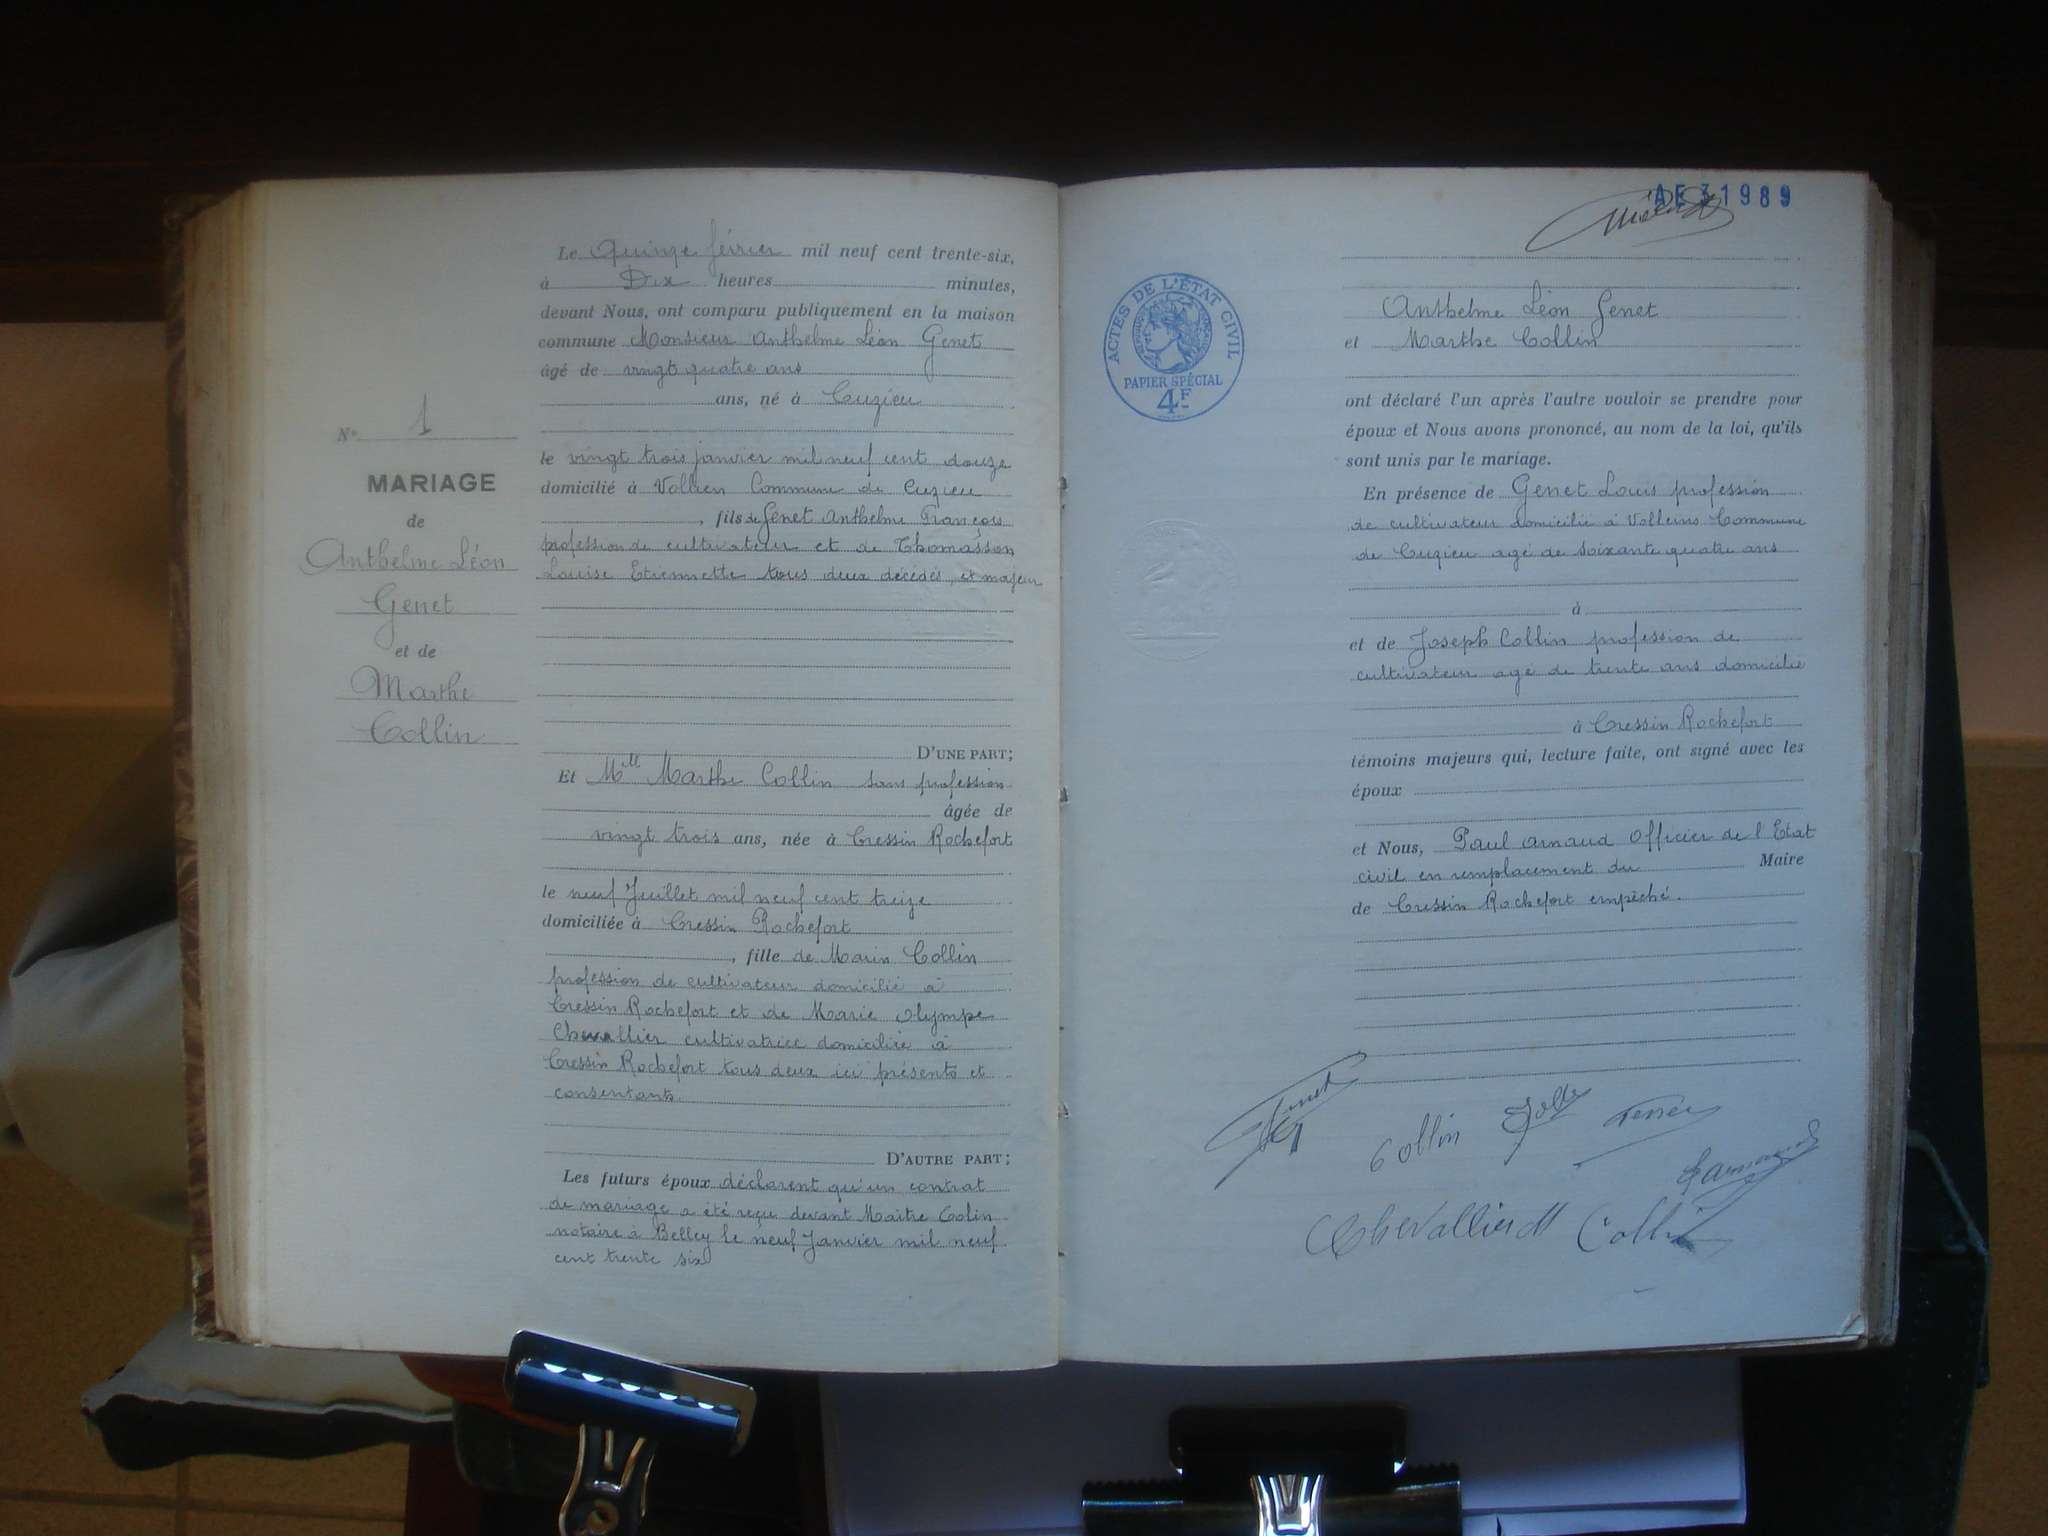 Nº 1
MARIAGE
de
Anthelme Léon
Genet
et de
Marthe
Collin
Le Quinze février mil neuf cent trente-six,
à Dix heures minutes,
devant Nous, ont comparu publiquement en la maison
commune Monsieur Anthelme Léon Genet
âgé de vingt quatre ans
ans, né à Cuzieu
le vingt trois janvier mil neuf cent douze
domicilié à Vollien Commune de Cuzieu
, fils de Genet Anthelme François
profession de cultivateur et de Thomasson
Louise Etiennette tous deux décédés, et majeur
D'UNE PART;
Et Mlle Marthe Collin sans profession
âgée de
vingt trois ans, née à Cressin Rochefort
le neuf Juillet mil neuf cent treize
domiciliée à Cressin Rochefort
, fille de Marin Collin
profession de cultivateur domicilié à
Cressin Rochefort et de Marie Olympe
Chevallier cultivatrice domiciliée à
Cressin Rochefort tous deux ici présents et
consentants
D'AUTRE PART;
Les futurs époux déclarent qu'un contrat
de mariage a été reçu devant Maître Colin
notaire à Belley le neuf Janvier mil neuf
cent trente six
AE 31989
ACTES DE L'ÉTAT CIVIL
PAPIER SPÉCIAL
4F
Anthelme Léon Genet
et Marthe Collin
ont déclaré l'un après l'autre vouloir se prendre pour
époux et Nous avons prononcé, au nom de la loi, qu'ils
sont unis par le mariage.
En présence de Genet Louis profession
de cultivateur domicilié à Volleins Commune
de Cuzieu agé de soixante quatre ans
à
et de Joseph Collin profession de
cultivateur agé de trente ans domicilié
à Cressin Rochefort
témoins majeurs qui, lecture faite, ont signé avec les
époux
et Nous, Paul Arnaud Officier de l'Etat
civil en remplacement du Maire
de Cressin Rochefort empêché.
Genet
Collin
Chevallier M Collin